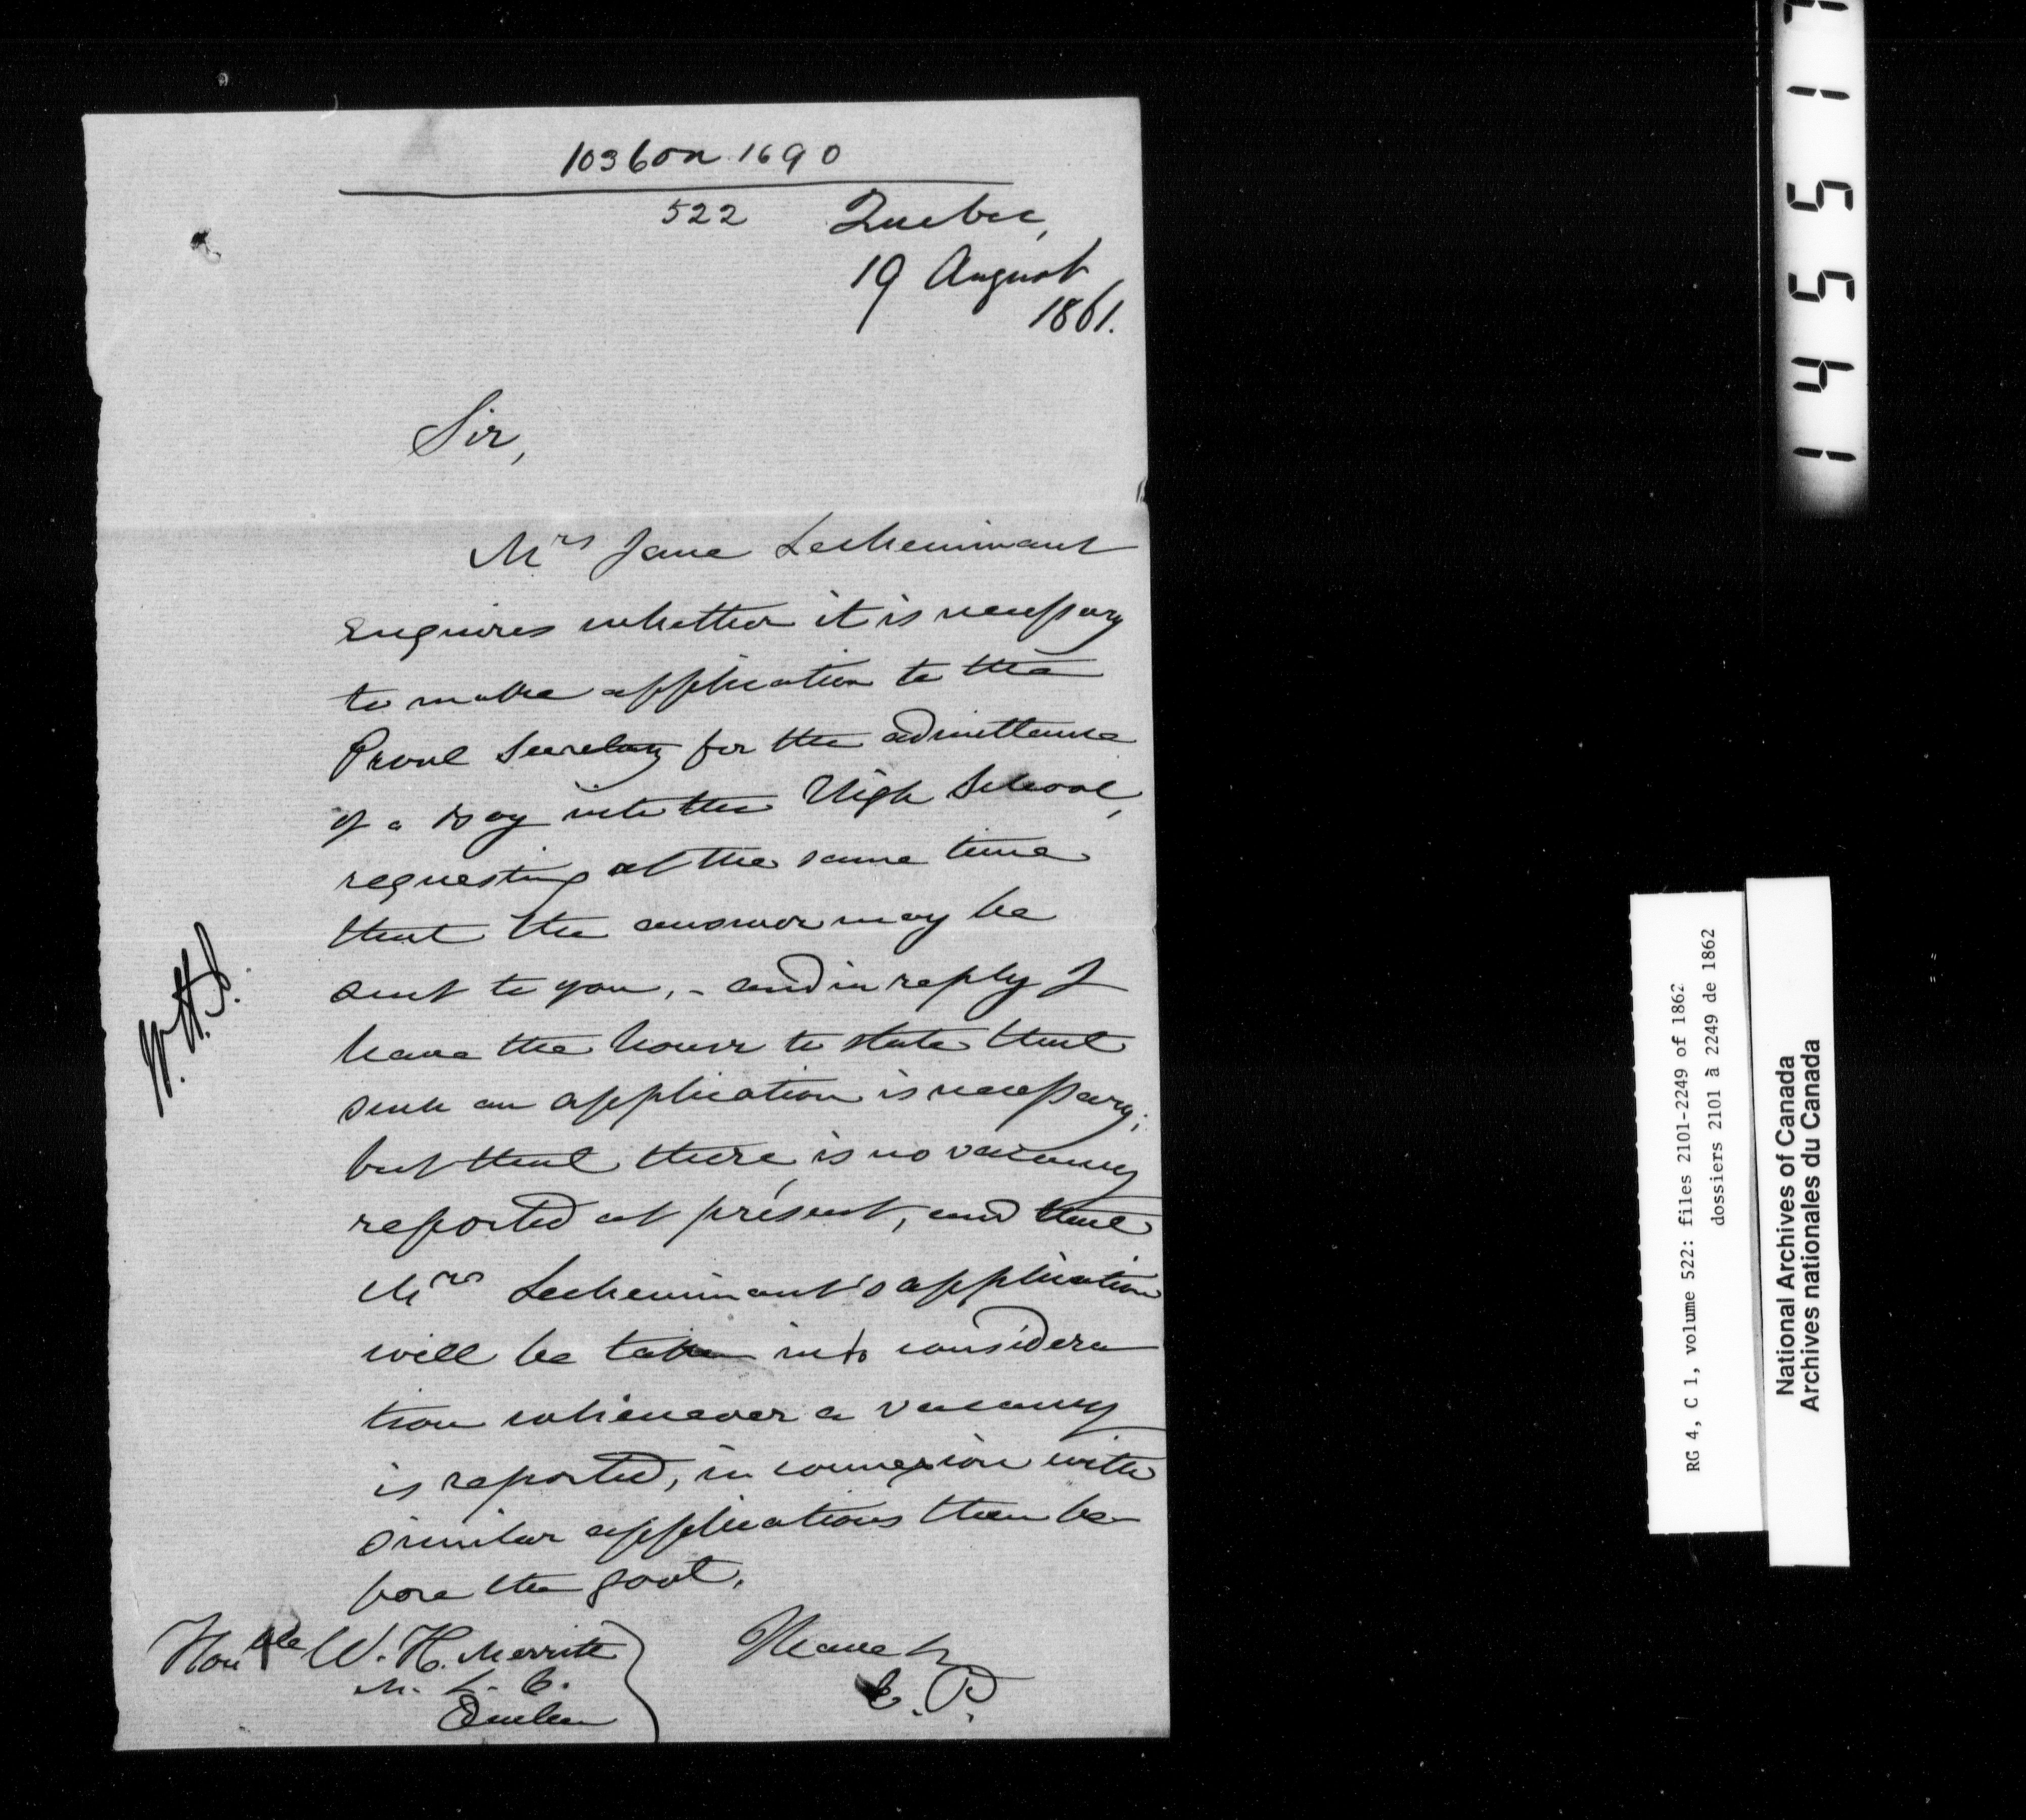 1036 on 1690
522
Quebec,
19 August
1861.
Sir,
Mrs Jane Lecheminant
enquires whether it is necessary
to make application to the
Provl Secretary for the admittance
of a boy into the High School,
requesting at the same time
that the answer may be
sent to you, - and in reply I
have the honor to state that
such an application is necessary;
but that there is no vacancy
reported at présent, and that
Mrs Lecheminant's application
will be taken into considera
tion whenever a vacancy
is reported, in connexion with
similar applications then be-
fore the Govt.
I have &c
C. P.
Honble W. H. Merritt
M. L. C.
Quebec
14551
RG 4, C 1, volume 522: files 2101-2249 of 1862
dossiers 2101 à 2249 de 1862
National Archives of Canada
Archives nationales du Canada